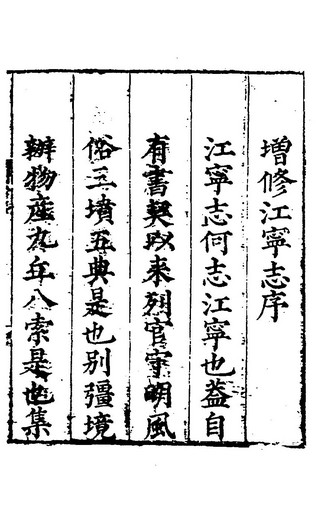 增修江寧志序
江寧志何志江寧也葢自
有書契以来列官守明風
俗三墳五典是也别彊境
辦物産九年八索是也集